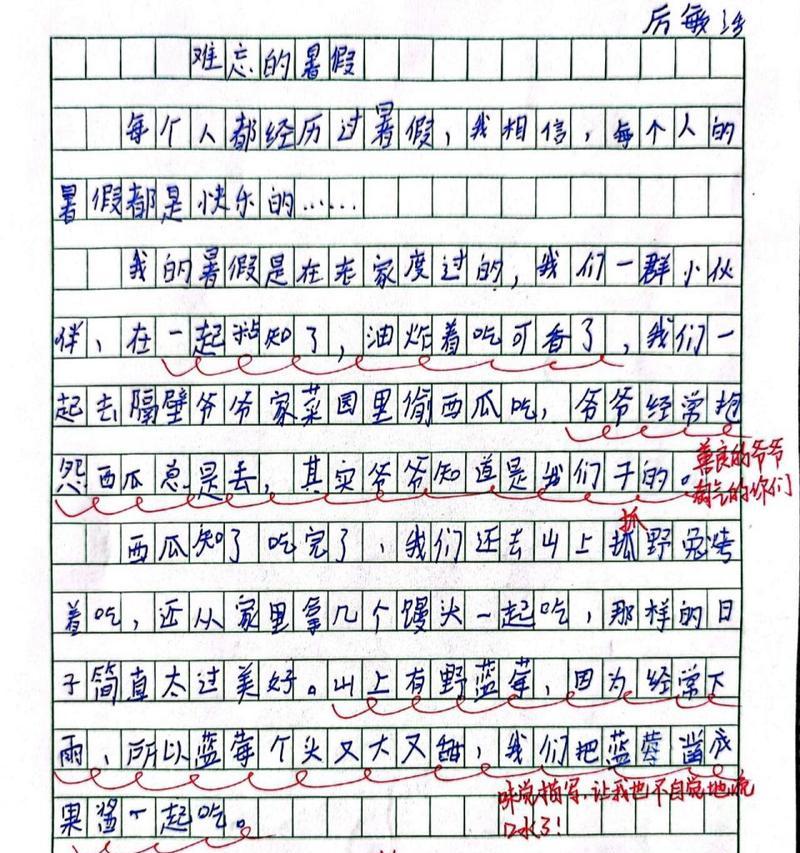 厉敏
难忘的暑假
每个人都经历过暑假，我相信，每个人的
暑假都是快乐的……
我的暑假是在老家度过的，我们一群小伙
伴，在一起粘知了，油炸着吃可香了，我们一
起去隔壁爷爷家菜园里偷西瓜吃，爷爷经常抱
怨西瓜总是丢，其实爷爷知道是我们干的。
善良的爷爷
淘气的你们
西瓜知了吃完了，我们还去山上抓野兔烤
抓
着吃，还从家里拿几个馒头一起吃，那样的日
子简直太过美好。山上有野蓝莓，因为经常下
雨，所以蓝莓个头又大又甜，我们把蓝莓凿成
果酱一起吃。
味觉描写，让我也不自觉地流
口水了！